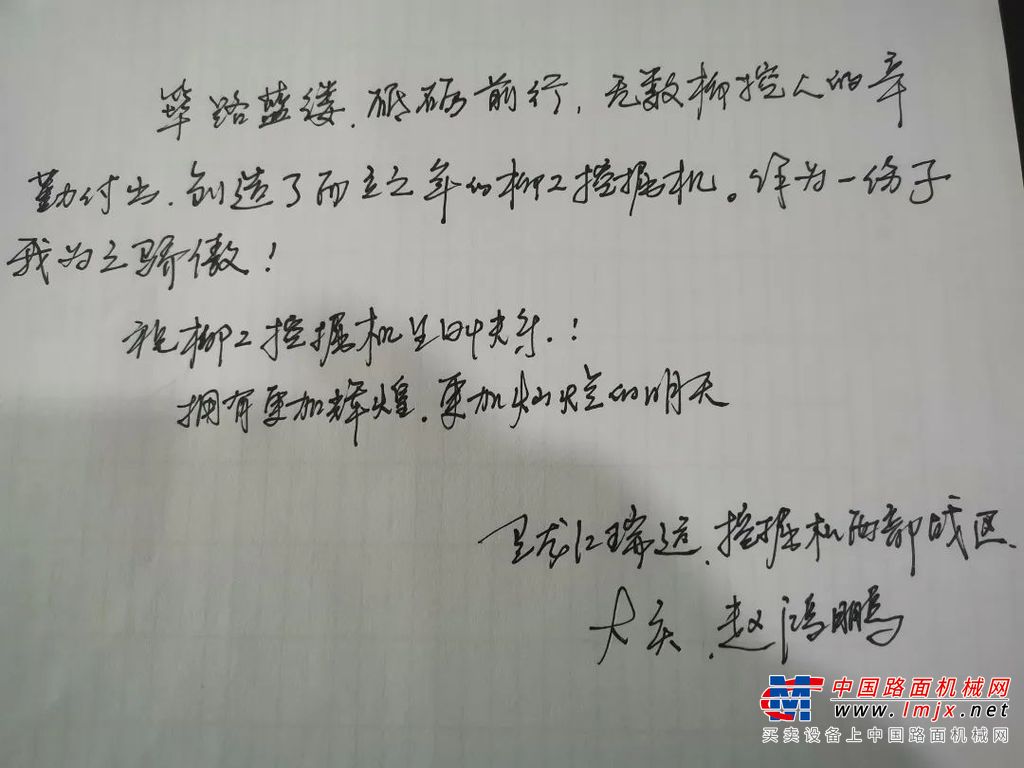 筚路蓝缕、砥砺前行，无数柳挖人的辛
勤付出，创造了而立之年的柳工挖掘机。作为一份子
我为之骄傲！
祝柳工挖掘机生日快乐！
拥有更加辉煌、更加灿烂的明天
黑龙江瑞远、挖掘机西部战区
大庆、赵鸿鹏
中国路面机械网
www.lmjx.net
买卖设备上中国路面机械网